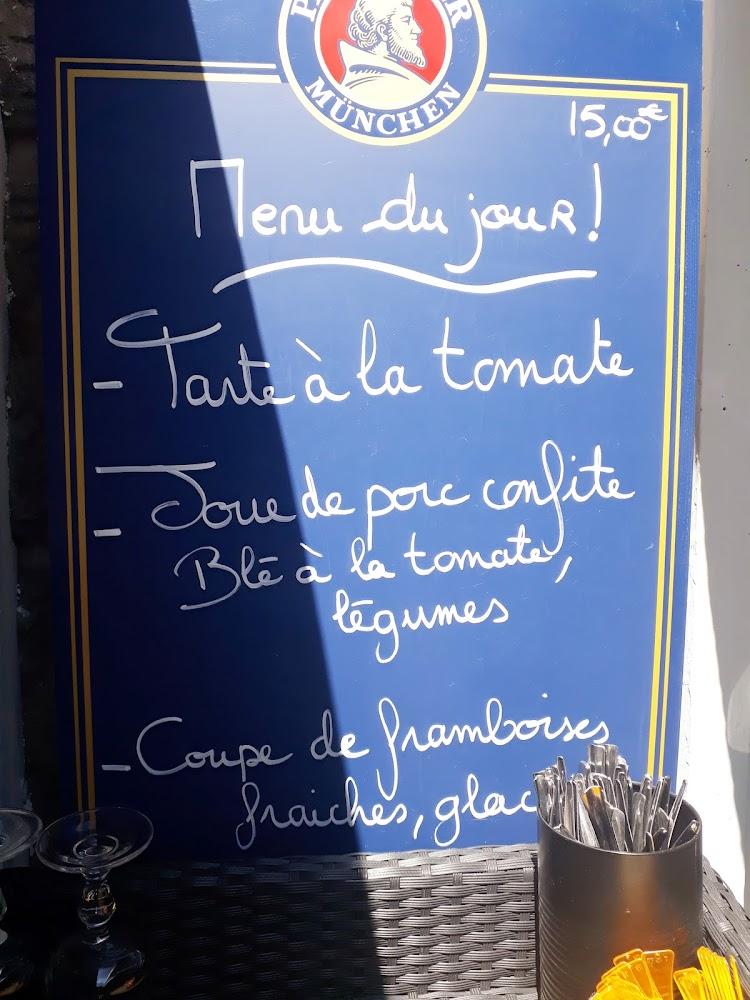 MÜNCHEN
15,00€
Menu du jour!
- Tarte à la tomate
- Joue de porc confite
Blé à la tomate,
légumes
- Coupe de framboises
fraiches,